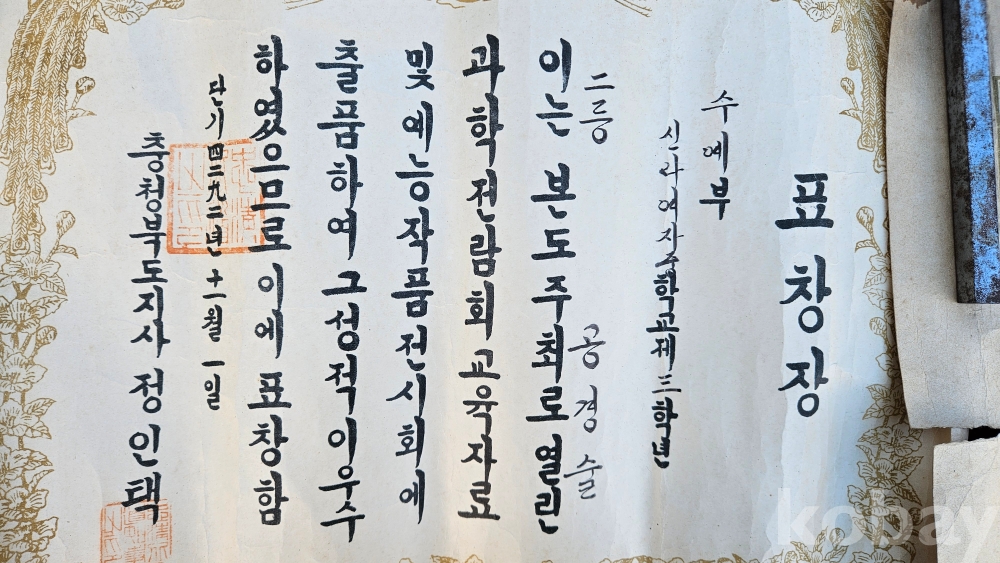 표창장
수예부
신라여자중학교제三학년
二등 공경술
이는 본도주최로열린
과학전람회교육자료
및예능작품전시회에
출품하여그성적이우수
하였으므로이에표창함
단기四二九二년十一월一일
충청북도지사정인택
kobay